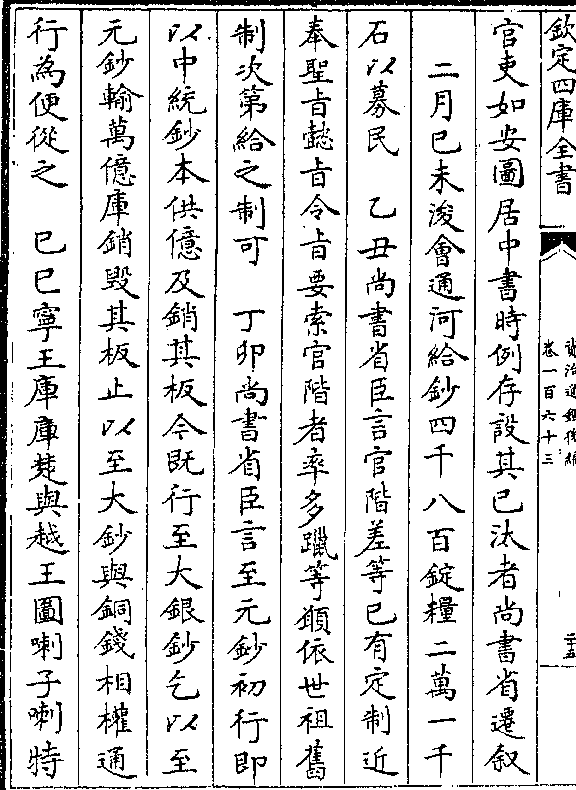 欽定四庫全書
資治通鑑後編
卷一百六十三
二十五
官吏如安圖居中書時例存設其已汰者尚書省遷叙
二月己未浚會通河給鈔四千八百錠糧二萬一千
石以募民　乙丑尚書省臣言官階差等已有定制近
奉聖旨懿旨令旨要索官階者率多躐等願依世祖舊
制次第給之制可　丁卯尚書省臣言至元鈔初行即
以中統鈔本供億及銷其板今既行至大銀鈔乞以至
元鈔輸萬億庫銷毀其板止以至大鈔與銅錢相權通
行為便從之　己巳寧王庫庫楚與越王圖喇子喇特